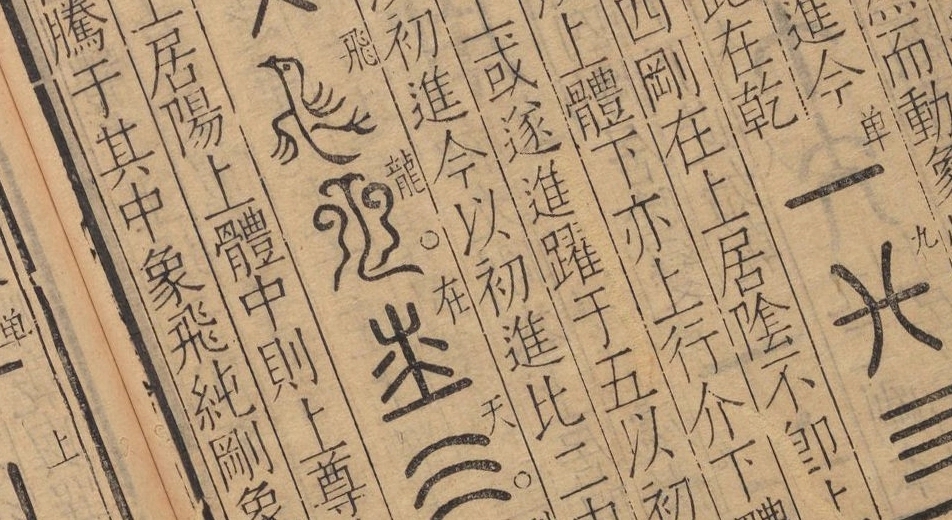 而動象
進今
此在乾
单
一
九
西剛在上居陰不卽上
上體下亦上行介下
上或遂進躍于五以初
初進今以初進比二
飛
龍
在
天
上居陽上體中則上尊
騰于其中象飛純剛象
单
上